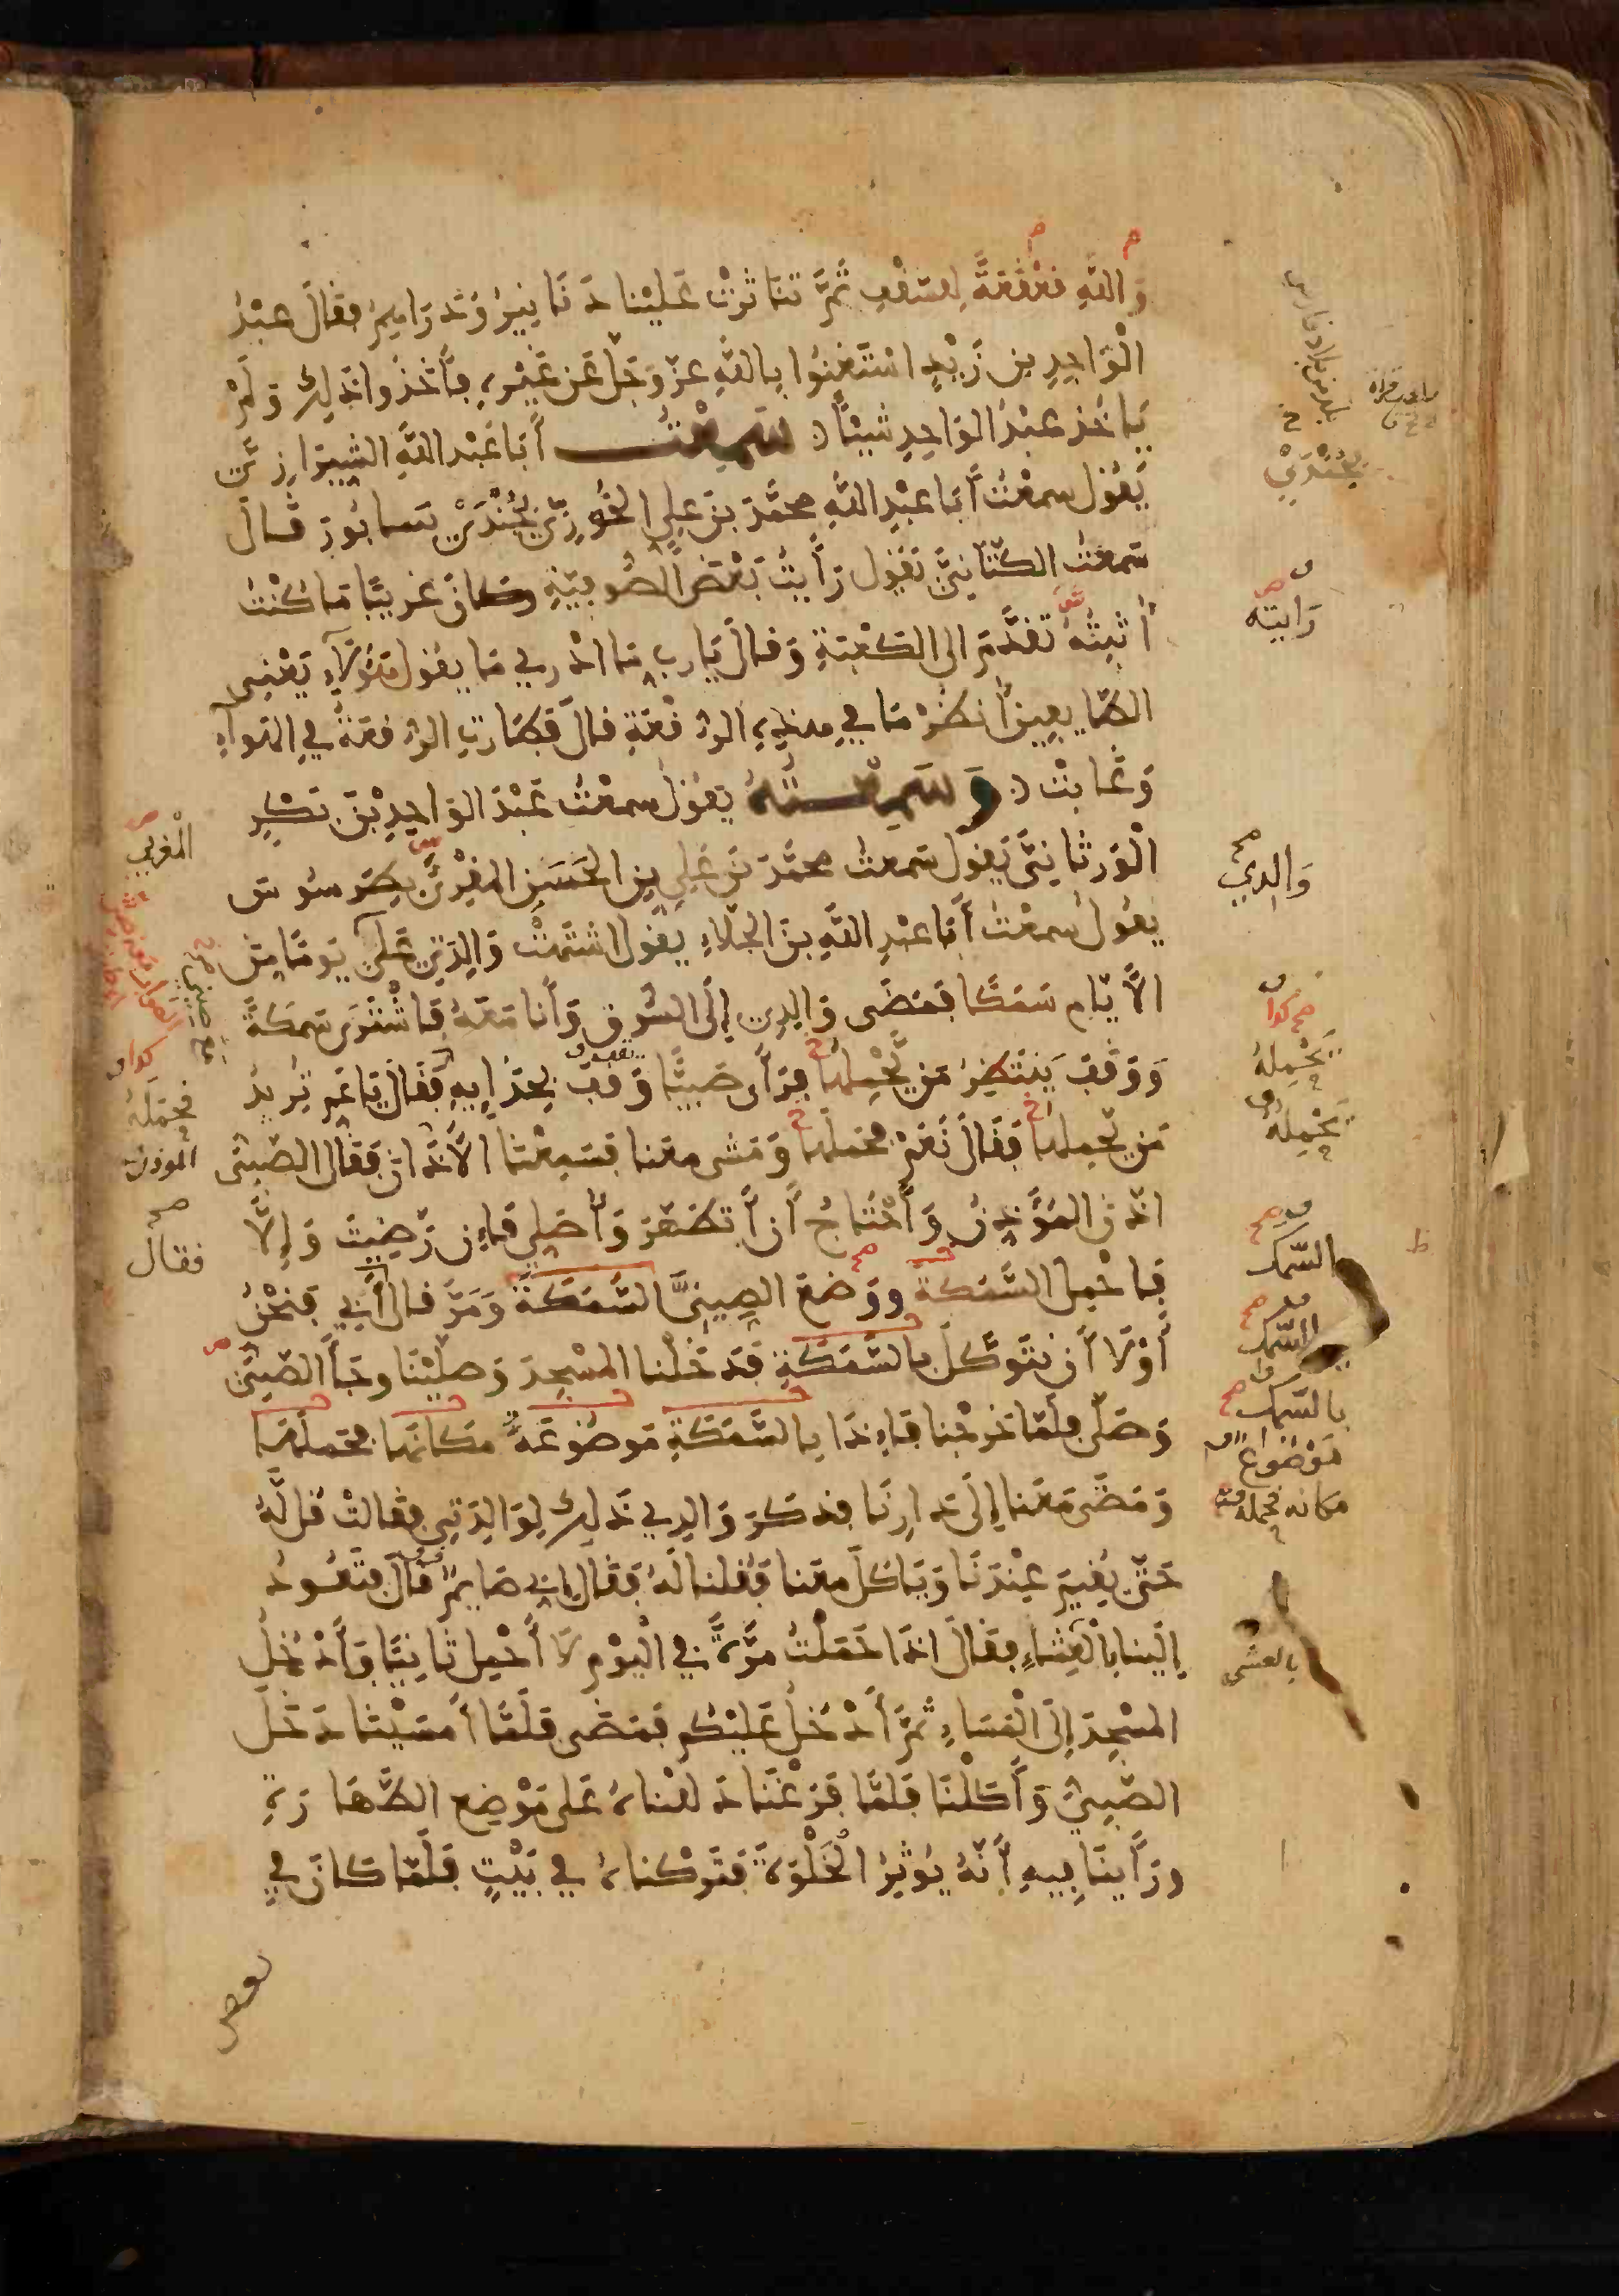 وَاللهِ قَعْقَعَةً لِلسَّقْفِ ثُمَّ تَنَاثَرَتْ عَلَيْنا دَنَانِيرُ وَدَرَاهِمُ فقَالَ عَبْدُ
الْوَاحِدِ بن زَيْدٍ اسْتَغْنُوا بِاللهِ عزّ وَجَلَّ عَن غَيْرِهِ فأَخَذُوا ذَلِك وَلَمْ
يَاخُذ عَبْدُ الوَاحِدِ شَيْئًا سَمِعْتُ أَبَا عَبْد اللهِ الشِّيرَازِيَّ
يَقُول سمعْتُ أَبَا عَبْدِ اللهِ محمَّدَ بنَ علِي الخُوزِيَّ بجُنْدَيْ سَابُورَ قَالَ
سَمعتُ الكَتَّانِيَّ يَقُول رَأَيتُ بَعْضَ الصُّوفِيّةِ وكَانَ غَرِيبًا مَا كُنْتُ
أُثْبِتُهُ تَقَدَّمَ الى الكَعْبَةِ وَقالَ يَارب مَا ادْرِي مَا يقُول هَؤُلَآءِ يَعْنِى
الطّايِفِينَ أنظُرْ مَا فِي هذِهِ الرُّقْعَةِ قالَ فَطَارَتِ الرُّقعَةُ فِي الهَوآءِ
وَغَابَتْ وَسَمِعْتُهُ يَقُولُ سمعْتُ عَبْدَ الوَاحِدِ بْنَ بَكْرٍ
الْوَرثَانِيَّ يَقول سَمعتُ محمَّدَ بنَ عَلِي بنِ الحَسَنِ المقْرِئَ بطَرسُوسَ
يَقُولُ سمعْتُ أَبَا عَبْدِ اللهِ بنَ الجَلّاءِ يَقُول اشْتَهَتْ وَالِدَتِي عَلَى أَبِي يَومًا مِنَ
الأَيّامِ سَمَكًا فَمَضَى وَالِدِي إِلَى السُّوقِ وَأَنا مَعَهُ فَاشْتَرَى سَمَكَةً
وَوَقَفَ يَنتَظِرُ مَن يَّحْمِلُهَا فرَأَى صَبيًّا وَقف بِحِذَايِهِ فَقَال يَا عَمِّ تُرِيدُ
مَن يحْمِلها فَقَالَ نَعَمْ فحمَلَها وَمَشى معَنا فَسَمِعْنَا الأَذَانَ فَقَال الصَّبِيُّ
اذّنَ المُؤَذِّنُ وَأَحْتَاجُ أَن أَتَطَهَّرَ وَأُصَلِّي فَإِن رَضِيتَ وَإِلَّا
فَاحْمِل السَّمَكَةَ وَوَضَعَ الصَّبِيُّ السَّمَكَةَ وَمَرَّ فقال أَبِي فَنَحْنُ
أَوْلَا أَن نتوَكَّلَ بِالسَّمَكَةِ فَدَخَلْنا المسْجِدَ وَصلَّيْنَا وجَآءَ الصَّبِيُّ
وَصَلَّى فلَمّا خَرَجْنا فَإِذَا بِالسَّمَكَةِ مَوضُوعَةً مَكَانَها فحَملَهَا
وَمَضَى مَعَنا إِلَى دَارِنَا فذكَرَ وَالِدِي ذَلِك لِوَالِدَتِي فقالَتْ قُل لَّهُ
حَتّى يُقِيمَ عِنْدَنَا وَيَاكلَ معَنا فَقُلنا لَهُ فَقَالَ إِنِّي صَايمٌ قَالَ فتَعُودُ
إِلَينا بِالعِشَاءِ فقَالَ اذَا حَمَلْتُ مَرَّةً فِي اليَوْمِ لَا أَحْمِل ثَانِيًا وَأَدْخُلُ
المسْجِدَ إِلَى الْمَسَاءِ ثُمَّ أَدْخُل عَلَيْكُم فَمَضى فَلَمَّا أَمسَيْنَا دَخَلَ
الصَّبِيُّ وَأَكَلْنَا فَلَمَّا فَرَغْنَا دَلَلْناهُ عَلى مَوْضِع الطَّهَارَةِ
ورَأَينَا فِيهِ أَنَّهُ يُوثِرُ الخَلْوَةَ فَتَرَكناهُ فِي بَيْتٍ فَلَمَّا كَانَ فِي
بجُنْدَيْ
رَايته
وَالِدِي
يَحْمِلهُ
يَحْمِلهُ
السّمك
السّمك
بالسّمك
مَوْضُوعٌ
مكانه فحمله
بالعشي
المغربي
فحمَلَهُ
الموذن
فقال